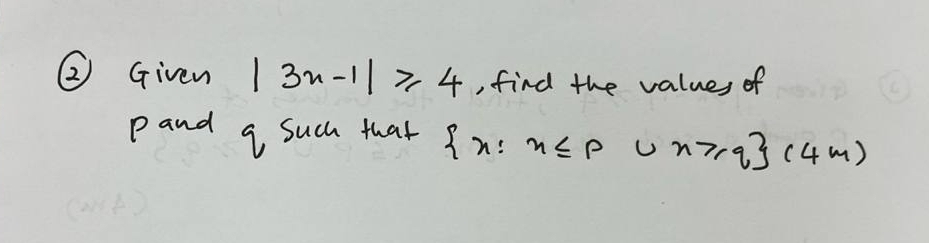 ② Given | 3x-1| ≥ 4, find the values of
p and q such that {x: x ≤ p ∪ x ≥ q} (4m)